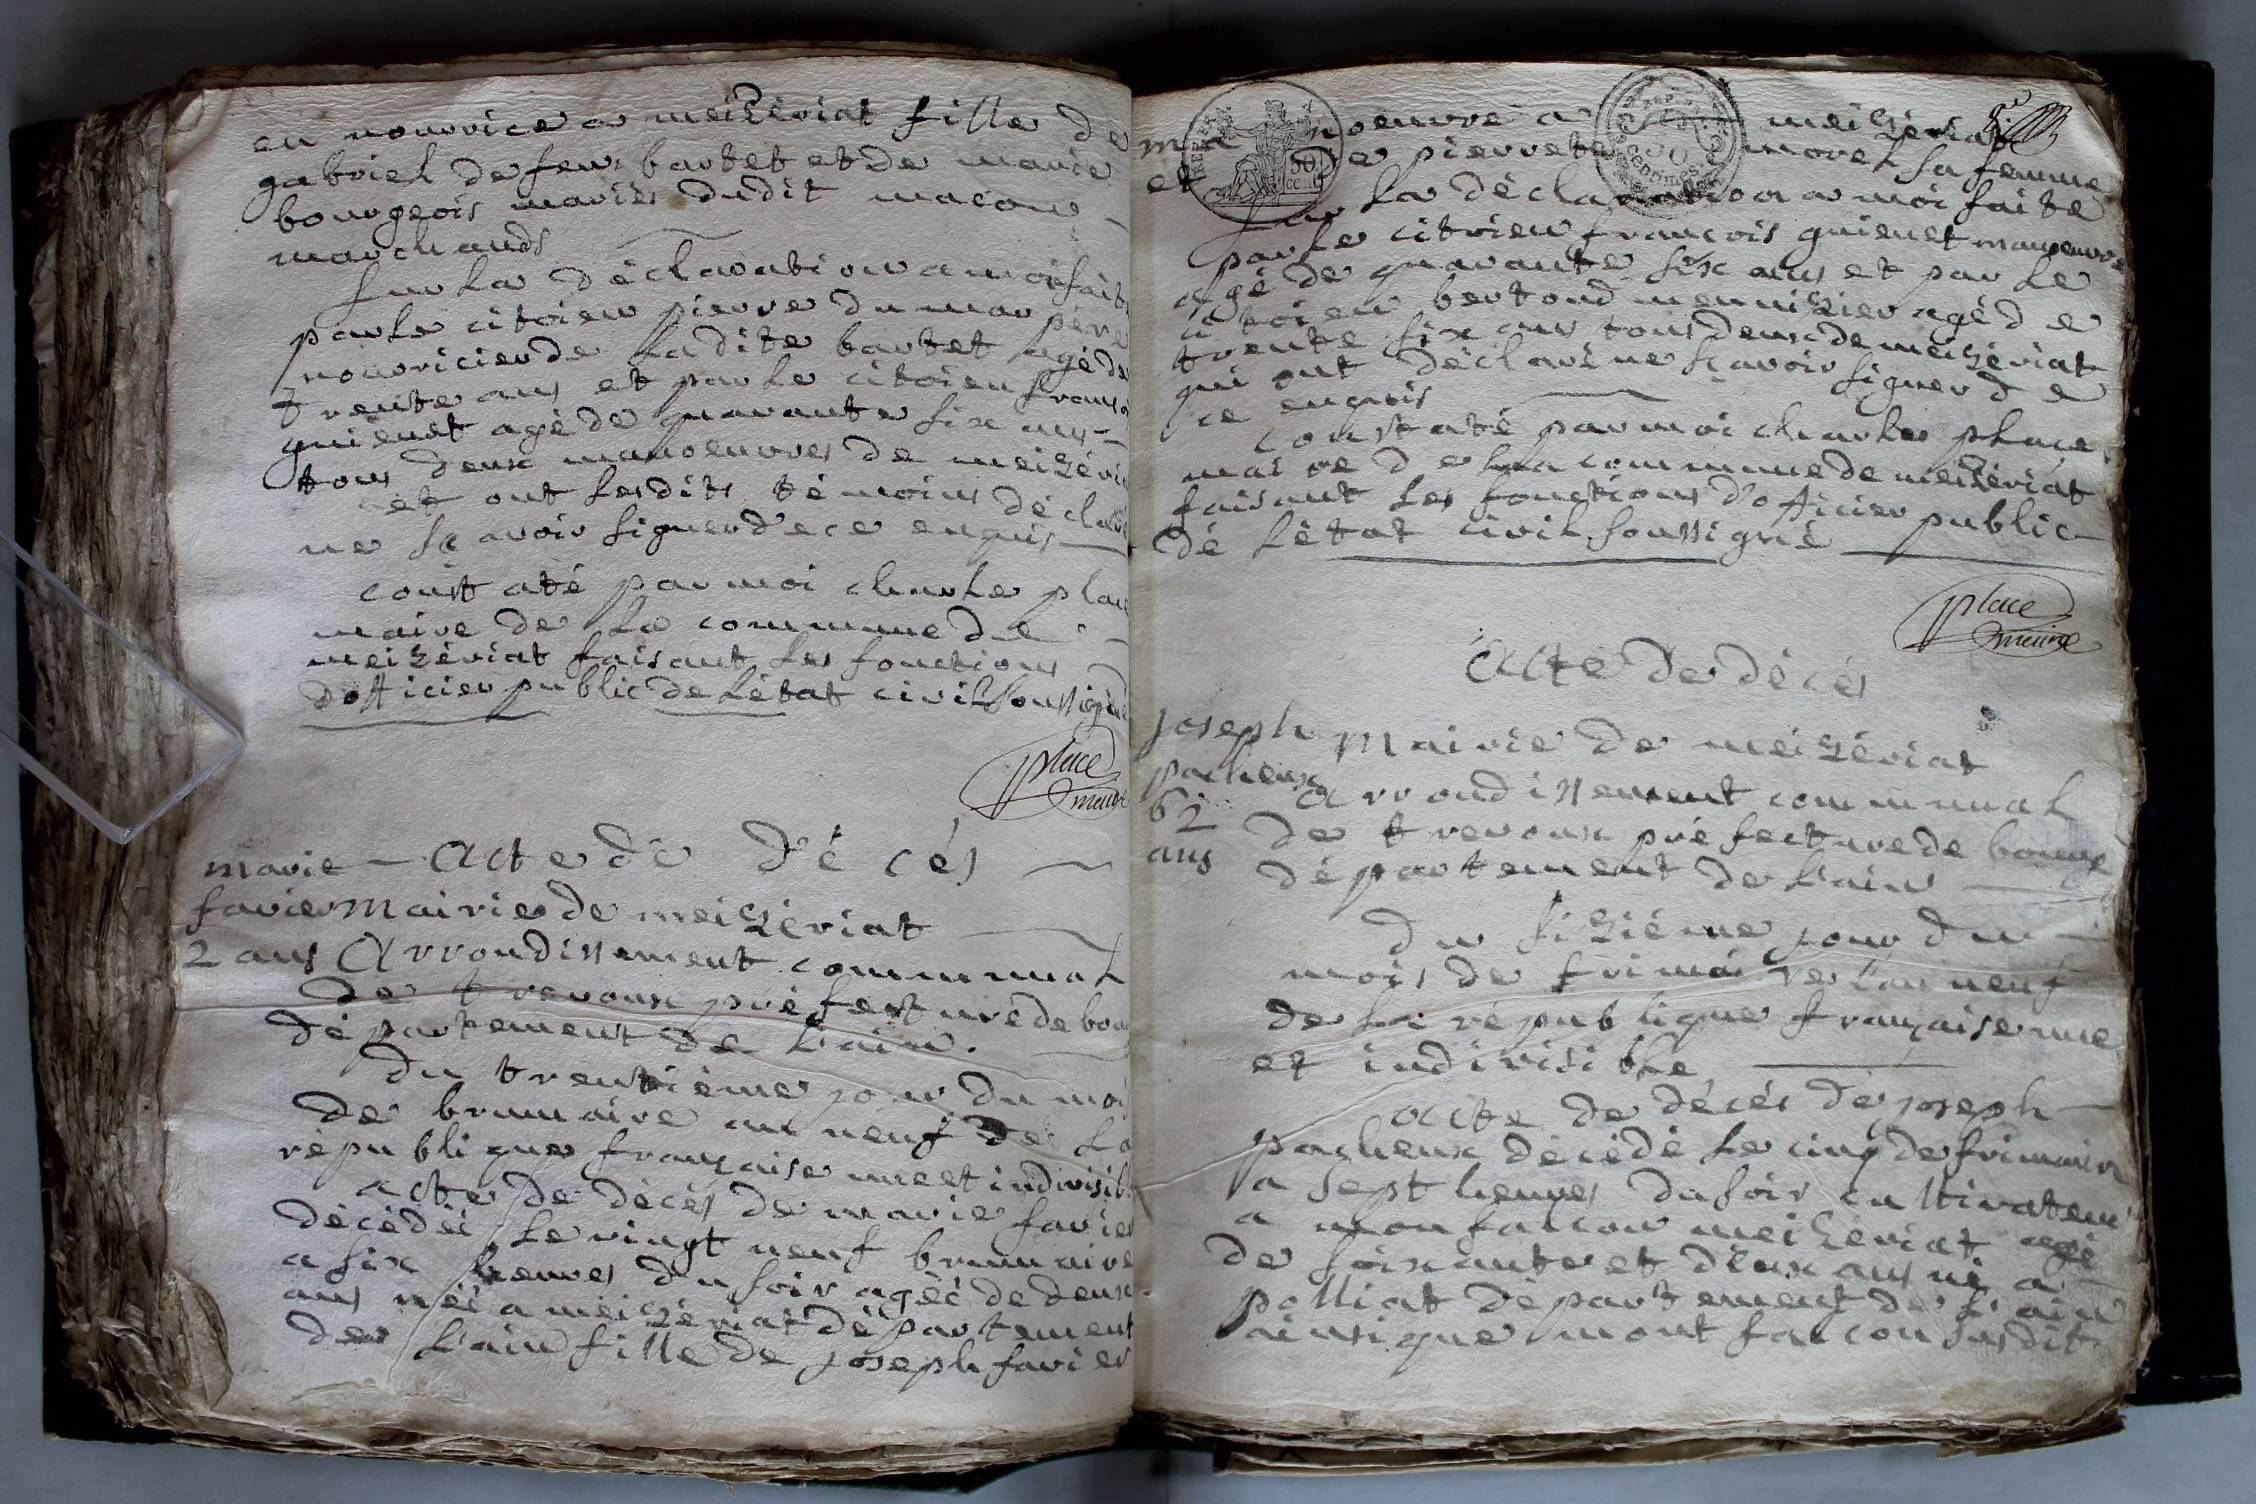 en nourrice a meizériat fille de
gabriel defeu bartet et de marie
bourgeois mariés dudit macon
marchands
sur la déclaration a moi faite
par le citoien pierre dumar père
nourricier de ladite bartet agé de
trente ans et par le citoien franso
guienet agé de quarante six ans
tous deux manoeuvres de meizéria
et ont lesdits témoins déclaré
ne sçavoir signer de ce enquis
constaté par moi charle place
maire de la commune de
meizériat faisant les fonctions
dofficier public de létat civil soussigné
place
maire
marie
favier
2 ans
acte de décés
Mairie de meizériat
Arrondissement communal
de trevoux préfecture de bou
département de l'ain.
du trentième jour du moi
de brumaire an neuf de la
république française une et indivisib
acte de décés de marie favier
décédéé le vingt neuf brumaire
a six heures du soir agéé de deux
ans néé a meizériat département
de l'ain fille de joseph favier
ma noeuvre a meizériat
et de pierrete morel sa femme
sur la déclaration a moi faite
par le citoien françois guienet manoeuvre
agé de quarante six ans et par le
citoien bertoud menuizier agé de
trente six ans tous deux de meizériat
qui ont déclaré ne sçavoir signer de
ce enquis
constaté par moi charles place
maire de la commune de meizériat
faisant les fonctions d'officier public
dé létat civil soussigné
place
maire
Acte de décés
joseph
pacheux
62
ans
Mairie de meizériat
Arrondissement communal
de trevoux préfecture de bourg
département de l'ain
du sizième jour du
mois de frimaire l'an neuf
de la république française une
et indivisible
acte de décés de joseph
pacheux décédé le cinq de frimaire
a sept heures du soir cultivateur
a monfalcon meizériat agé
de soixante et deux ans né a
polliat département de l'ain
ainsi que montfalcon susdit